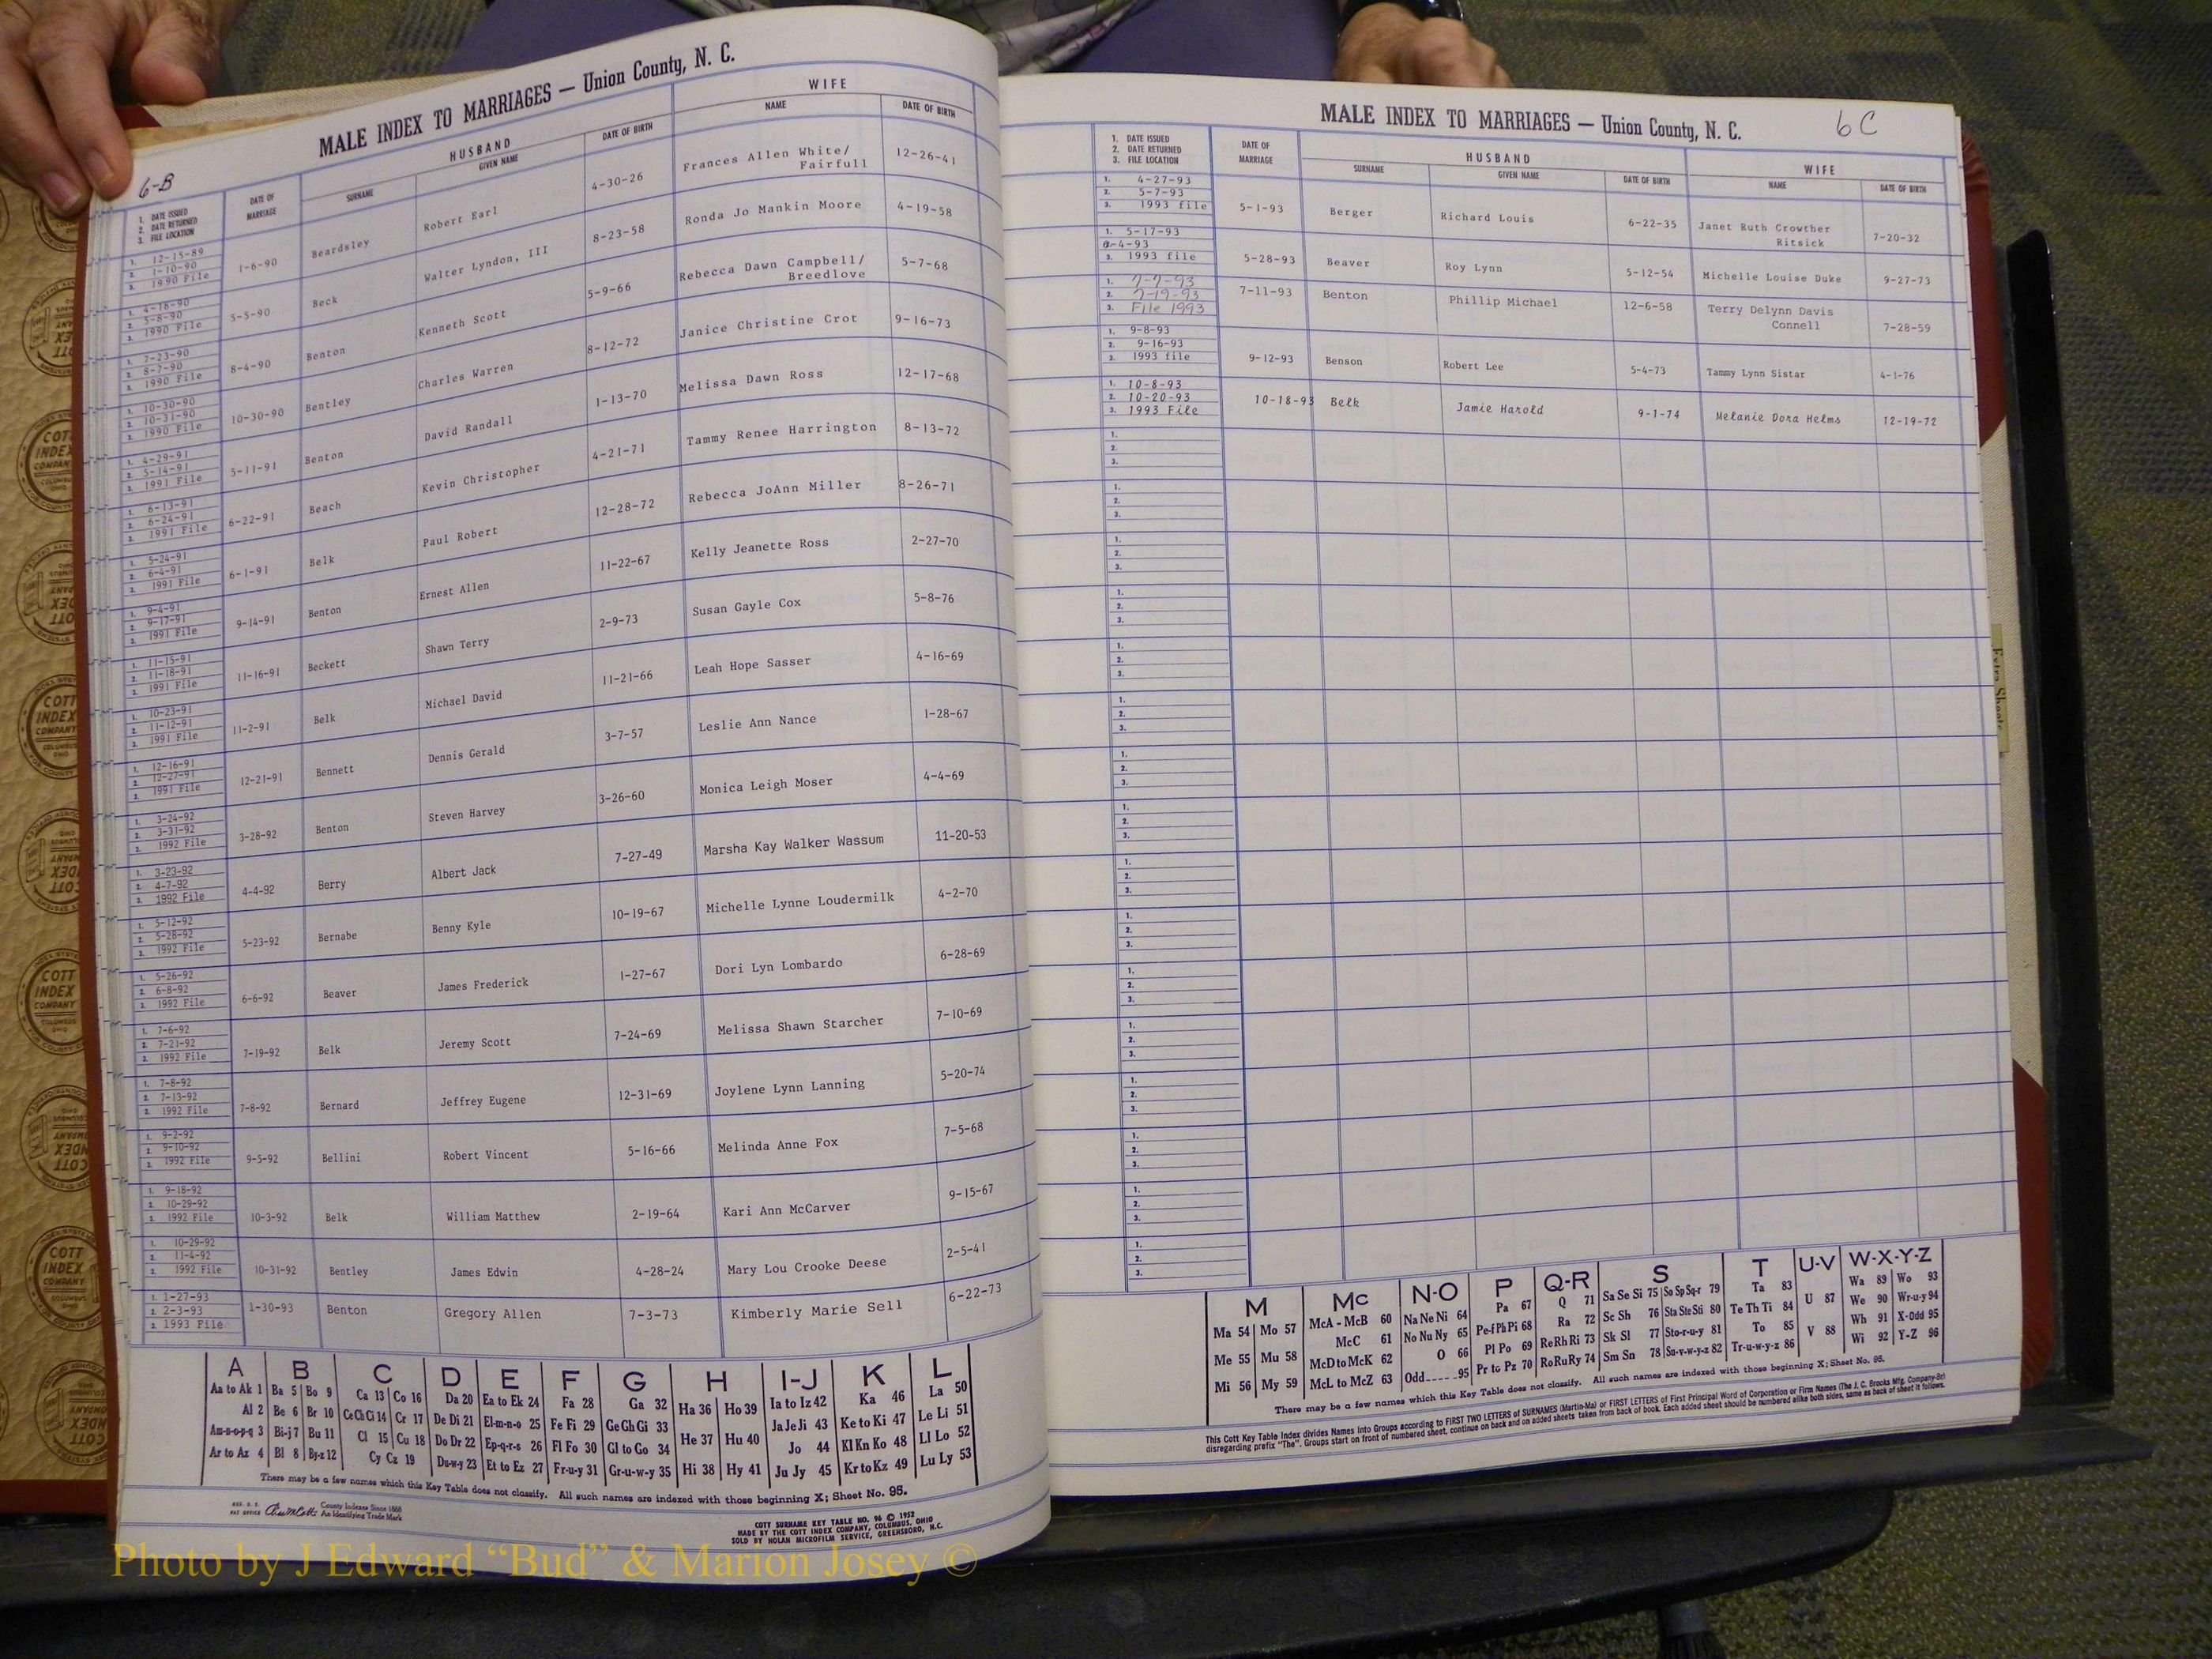 MALE INDEX TO MARRIAGES — Union County, N. C.
6-B
1. DATE ISSUED
2. DATE RETURNED
3. FILE LOCATION
DATE OF MARRIAGE
HUSBAND
SURNAME GIVEN NAME DATE OF BIRTH
WIFE
NAME DATE OF BIRTH
1. 12-15-89
2. 1-10-90
3. 1990 File
1-6-90 Beardsley Robert Earl 4-30-26 Frances Allen White/ 12-26-41
Fairfull
1. 4-16-90
2. 5-8-90
3. 1990 File
5-5-90 Beck Walter Lyndon, III 8-23-58 Ronda Jo Mankin Moore 4-19-58
1. 7-23-90
2. 8-7-90
3. 1990 File
8-4-90 Benton Kenneth Scott 5-9-66 Rebecca Dawn Campbell/ 5-7-68
Breedlove
1. 10-30-90
2. 10-31-90
3. 1990 File
10-30-90 Bentley Charles Warren 8-12-72 Janice Christine Crot 9-16-73
1. 4-29-91
2. 5-14-91
3. 1991 File
5-11-91 Benton David Randall 1-13-70 Melissa Dawn Ross 12-17-68
1. 6-13-91
2. 6-24-91
3. 1991 File
6-22-91 Beach Kevin Christopher 4-21-71 Tammy Renee Harrington 8-13-72
1. 5-24-91
2. 6-4-91
3. 1991 File
6-1-91 Belk Paul Robert 12-28-72 Rebecca JoAnn Miller 8-26-71
1. 9-4-91
2. 9-17-91
3. 1991 File
9-14-91 Benton Ernest Allen 11-22-67 Kelly Jeanette Ross 2-27-70
1. 11-15-91
2. 11-18-91
3. 1991 File
11-16-91 Beckett Shawn Terry 2-9-73 Susan Gayle Cox 5-8-76
1. 10-23-91
2. 11-12-91
3. 1991 File
11-2-91 Belk Michael David 11-21-66 Leah Hope Sasser 4-16-69
1. 12-16-91
2. 12-27-91
3. 1991 File
12-21-91 Bennett Dennis Gerald 3-7-57 Leslie Ann Nance 1-28-67
1. 3-24-92
2. 3-31-92
3. 1992 File
3-28-92 Benton Steven Harvey 3-26-60 Monica Leigh Moser 4-4-69
1. 3-23-92
2. 4-7-92
3. 1992 File
4-4-92 Berry Albert Jack 7-27-49 Marsha Kay Walker Wassum 11-20-53
1. 5-12-92
2. 5-28-92
3. 1992 File
5-23-92 Bernabe Benny Kyle 10-19-67 Michelle Lynne Loudermilk 4-2-70
1. 5-26-92
2. 6-8-92
3. 1992 File
6-6-92 Beaver James Frederick 1-27-67 Dori Lyn Lombardo 6-28-69
1. 7-6-92
2. 7-21-92
3. 1992 File
7-19-92 Belk Jeremy Scott 7-24-69 Melissa Shawn Starcher 7-10-69
1. 7-8-92
2. 7-13-92
3. 1992 File
7-8-92 Bernard Jeffrey Eugene 12-31-69 Joylene Lynn Lanning 5-20-74
1. 9-2-92
2. 9-10-92
3. 1992 File
9-5-92 Bellini Robert Vincent 5-16-66 Melinda Anne Fox 7-5-68
1. 9-18-92
2. 10-29-92
3. 1992 File
10-3-92 Belk William Matthew 2-19-64 Kari Ann McCarver 9-15-67
1. 10-29-92
2. 11-4-92
3. 1992 File
10-31-92 Bentley James Edwin 4-28-24 Mary Lou Crooke Deese 2-5-41
1. 1-27-93
2. 2-3-93
3. 1993 File
1-30-93 Benton Gregory Allen 7-3-73 Kimberly Marie Sell 6-22-73
A B C D E F G H I-J K L
Aa to Ak 1 Ba 5 Bo 9 Ca 13 Co 16 Da 20 Ea to Ek 24 Fa 28 Ga 32 Ha 36 Ho 39 Ia to Iz 42 Ka 46 La 50
Al 2 Be 6 Br 10 Ce Ch Ci 14 Cr 17 De Di 21 El-m-n-o 25 Fe Fi 29 Ge Gh Gi 33 He 37 Hu 40 Ja Je Ji 43 Ke to Ki 47 Le Li 51
Am-n-o-p-q 3 Bi-j 7 Bu 11 Cl 15 Cu 18 Do Dr 22 Ep-q-r-s 26 Fl Fo 30 Gl to Go 34 Hi 38 Hy 41 Jo 44 Kl Kn Ko 48 Ll Lo 52
Ar to Az 4 Bl 8 By-z 12 Cy Cz 19 Du-w-y 23 Et to Ez 27 Fr-u-y 31 Gr-u-w-y 35 Ju Jy 45 Kr to Kz 49 Lu Ly 53
There may be a few names which this Key Table does not classify. All such names are indexed with those beginning X; Sheet No. 95.
County Indexes Since 1888
An Identifying Trade Mark
COTT SURNAME KEY TABLE NO. 96 © 1952
MADE BY THE COTT INDEX COMPANY, COLUMBUS, OHIO
SOLD BY NOLAN MICROFILM SERVICE, GREENSBORO, N.C.
Photo by J Edward “Bud” & Marion Josey ©
MALE INDEX TO MARRIAGES — Union County, N. C.
6C
1. DATE ISSUED
2. DATE RETURNED
3. FILE LOCATION
DATE OF MARRIAGE
HUSBAND
SURNAME GIVEN NAME DATE OF BIRTH
WIFE
NAME DATE OF BIRTH
1. 4-27-93
2. 5-7-93
3. 1993 file
5-1-93 Berger Richard Louis 6-22-35 Janet Ruth Crowther 7-20-32
Ritsick
1. 5-17-93
6-4-93
3. 1993 file
5-28-93 Beaver Roy Lynn 5-12-54 Michelle Louise Duke 9-27-73
1. 7-7-93
2. 7-19-93
3. File 1993
7-11-93 Benton Phillip Michael 12-6-58 Terry Delynn Davis
Connell 7-28-59
1. 9-8-93
2. 9-16-93
3. 1993 file
9-12-93 Benson Robert Lee 5-4-73 Tammy Lynn Sistar 4-1-76
1. 10-8-93
2. 10-20-93
3. 1993 File
10-18-93 Belk Jamie Harold 9-1-74 Melanie Dora Helms 12-19-72
1.
2.
3.
1.
2.
3.
1.
2.
3.
1.
2.
3.
1.
2.
3.
1.
2.
3.
1.
2.
3.
1.
2.
3.
1.
2.
3.
1.
2.
3.
1.
2.
3.
1.
2.
3.
1.
2.
3.
1.
2.
3.
1.
2.
3.
1.
2.
3.
M Mc N-O P Q-R S T U-V W-X-Y-Z
Ma 54 Mo 57 McA - McB 60 Na Ne Ni 64 Pa 67 Q 71 Sa Se Si 75 So Sp Sq-r 79 Ta 83 U 87 Wa 89 Wo 93
Me 55 Mu 58 McC 61 No Nu Ny 65 Pe-f Ph Pi 68 Ra 72 Sc Sh 76 Sta Ste Sti 80 Te Th Ti 84 V 88 We 90 Wr-u-y 94
Mi 56 My 59 McD to McK 62 O 66 Pl Po 69 Re Rh Ri 73 Sk Sl 77 Sto-r-u-y 81 To 85 Wh 91 X-Odd 95
McL to McZ 63 Odd-----95 Pr to Pz 70 Ro Ru Ry 74 Sm Sn 78 Su-v-w-y-z 82 Tr-u-w-y-z 86 Wi 92 Y-Z 96
There may be a few names which this Key Table does not classify. All such names are indexed with those beginning X; Sheet No. 95.
This Cott Key Table Index divides Names into Groups according to FIRST TWO LETTERS of SURNAMES (Martin-Ma) or FIRST LETTERS of First Principal Word of Corporation or Firm Names (The J. C. Brooks Mfg. Company-Br)
disregarding prefix "The". Groups start on front of numbered sheet, continue on back and on added sheets taken from back of book. Each added sheet should be numbered alike both sides, same as back of sheet it follows.
Extra Sheets
COTT
INDEX
COMPANY